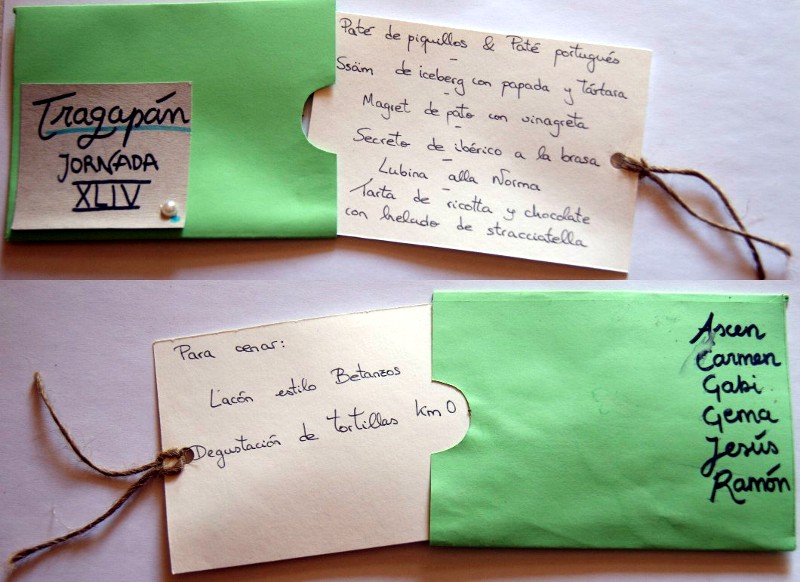 Tragapán
JORNADA
XLIV
Paté de piquillos & Paté portugués
-
Ssäm de iceberg con papada y tártara
-
Magret de pato con vinagreta
-
Secreto de ibérico a la brasa
-
Lubina alla Norma
-
Tarta de ricotta y chocolate
con helado de stracciatella
Para cenar:
Lacón estilo Betanzos
Degustación de tortillas km 0
Ascen
Carmen
Gabi
Gema
Jesús
Ramón